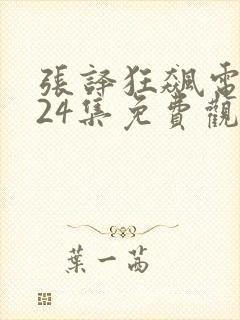 張譯狂飆電
24集免費觀
葉一茜